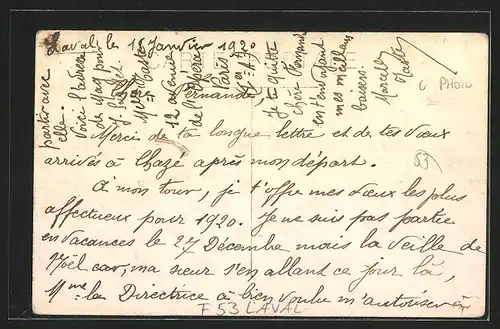 Laval, le 15 Janvier 1920
Chère Fernande,
Merci de ta longue lettre et de tes vœux
arrivés à Chazé après mon départ.
A mon tour, je t'offre mes vœux les plus
affectueux pour 1920. Je ne suis pas partie
en vacances le 27 Décembre mais la veille de
Noël car, ma sœur s'en allant ce jour là,
Mme la Directrice a bien voulu m'autoriser à
partir avec
elle.
Voici l'adresse
de Mag pour
Melle
12 avenue
de l'Opéra
Paris
Je te quitte
chère Fernande
en t'envoyant
mes meilleurs
baisers
Marcelle
PHOTO
53
F 53 LAVAL